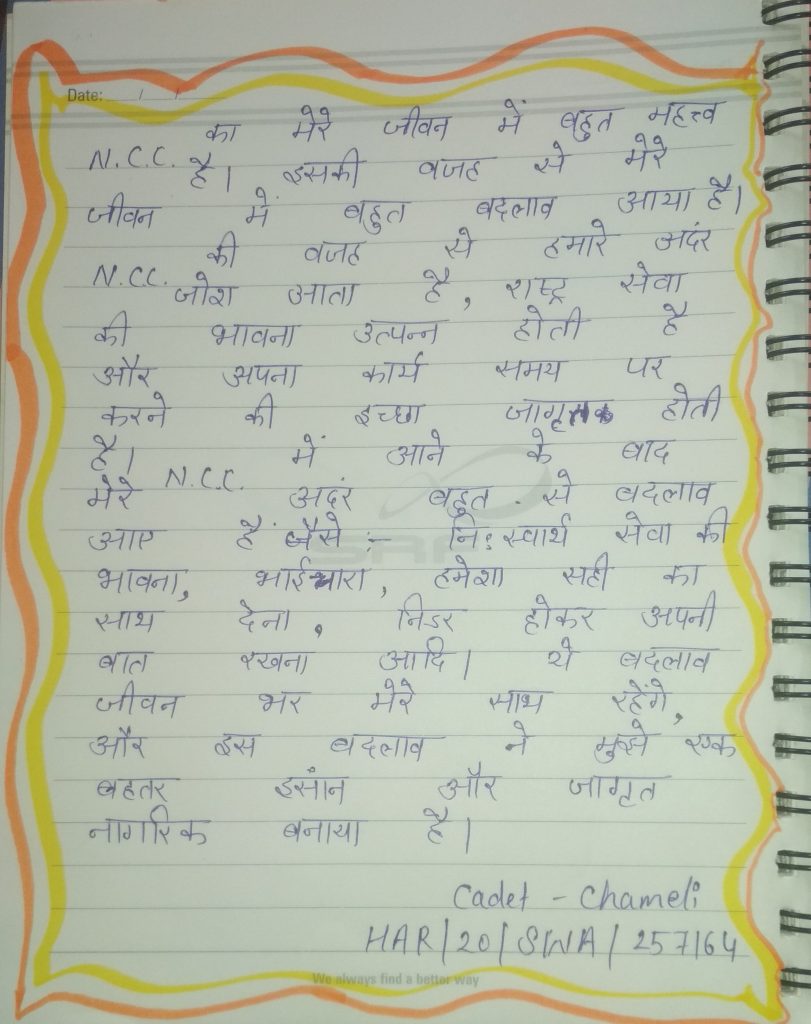 Date: __/__/__
N.C.C. का मेरे जीवन में बहुत महत्त्व
है। इसकी वजह से मेरे
जीवन में बहुत बदलाव आया है।
N.C.C. की वजह से हमारे अदंर
जोश आता है, राष्ट्र सेवा
की भावना उत्पन्न होती है
और अपना कार्य समय पर
करने की इच्छा जागृत होती
है। N.C.C. में आने के बाद
मेरे अदंर बहुत से बदलाव
आए हैं जैसे :- निःस्वार्थ सेवा की
भावना, भाईचारा, हमेशा सही का
साथ देना, निडर होकर अपनी
बात रखना आदि। ये बदलाव
जीवन भर मेरे साथ रहेंगे,
और इस बदलाव ने मुझे एक
बहतर इसांन और जागृत
नागरिक बनाया है।
Cadet - Chameli
HAR/20/SWA/257164
We always find a better way